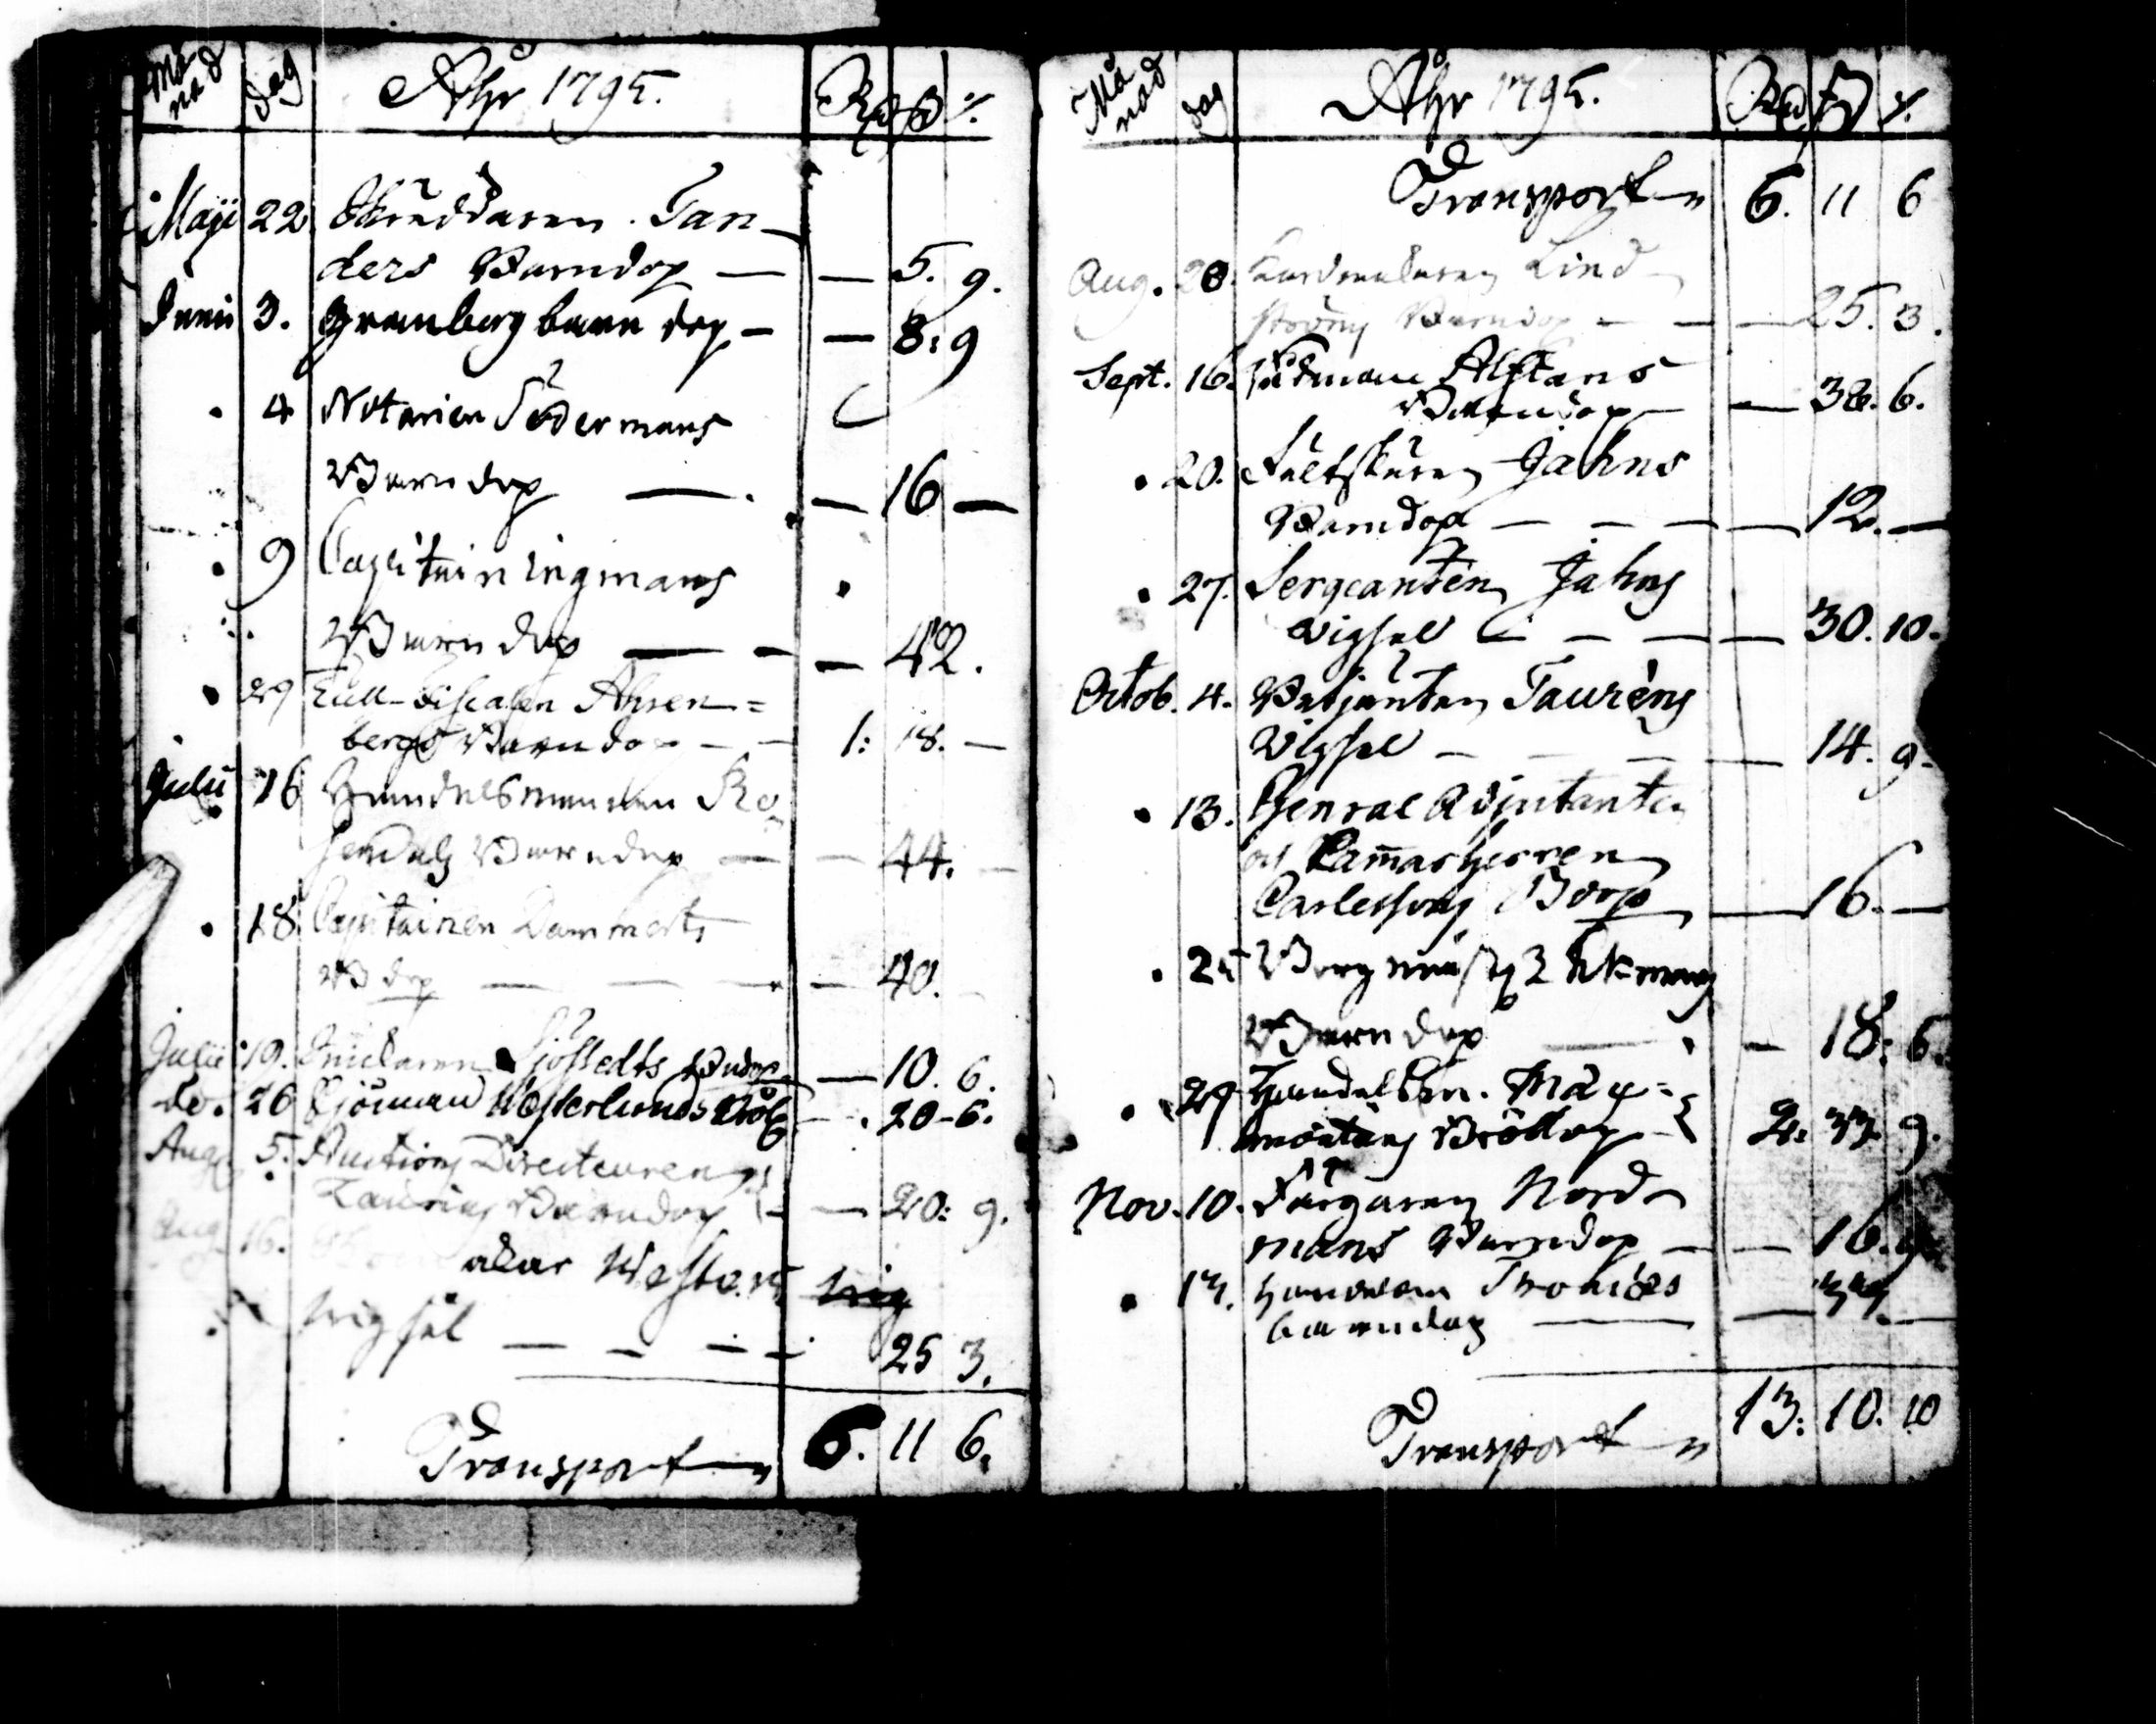 Månad dag Åhr 1795. Rd ß
Maji 22 Skräddaren Tan-
ders Barndop — — 5. 9.
Junii 3. Granberg barndop — — 8: 9
4 Notarien Södermans
Barndop — — 16 —
9 Capitain Ingmans
Barndop — — 42.
29 Tull-Fiscalen Ahren=
bergs Barndop — — 1: 18. —
Julii 16 Handelsmannen Ro
sendals Barndop — — 44. —
18 Capitainen Dammerts
Bdop — — 40.
Julii 19. Sjöstedts Bndop — 10. 6.
do. 26 Sjöman Westerlunds — 20-6.
Aug 5. Auctions Directeurens
Laurins Barndop — 20: 9.
Aug 16.
Vigsel — — 25 3.
Transport 6. 11 6.
Månad dag Åhr 1795. Rd ß
Transport 6. 11 6
Aug. 20. Lind
ströms Barndop — — 25. 3.
Sept. 16. Alftans
Barndop — — 38. 6.
20. Fältskären Jahns
Barndop — — — 12. —
27. Sergeanten Jahns
Vigsel — — — 30. 10.
Octob. 4. Betjenten Tauréns
Vigsel — — 14. 9.
13. General Adjutanten
och Cammarherren
Carlessons Bdop — 16. —
25
Barndop — — 18: 6.
29 Handelsm. May=
Bröllop 2: 33. 9.
Nov. 10. Färgaren Nord
mans Barndop — — 16.
13.
barndop — — —
Transport 13: 10. 10